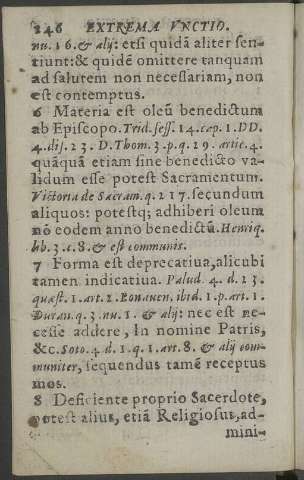 246 EXTREMA VNCTIO.
nu. 16. & alij: etsi quidā aliter sen-
tiunt: & quidē omittere tanquam
ad salutem non necessariam, non
est contemptus.
6 Materia est oleū benedictum
ab Episcopo. Trid. sess. 14. cap. 1. DD.
4. dis. 23. D. Thom. 3. p. q. 29. artic. 4.
quāquā etiam sine benedicto va-
lidum esse potest Sacramentum.
Victoria de Sacram. q. 217. secundum
aliquos: potestq; adhiberi oleum
nō eodem anno benedictū. Henriq.
lib. 3. c. 8. & est communis.
7 Forma est deprecatiua, alicubi
tamen indicatiua. Palud. 4. d. 23.
quæst. 1. art. 2. Bonauen. ibid. 1. p. art. 1.
Duran. q. 3. nu. 1. & alij: nec est ne-
cesse addere, In nomine Patris,
&c. Soto. 4. d. 1. q. 1. art. 8. & alij com-
muniter, sequendus tamē receptus
mos.
8 Deficiente proprio Sacerdote,
potest alius, etiā Religiosus, ad-
mini-